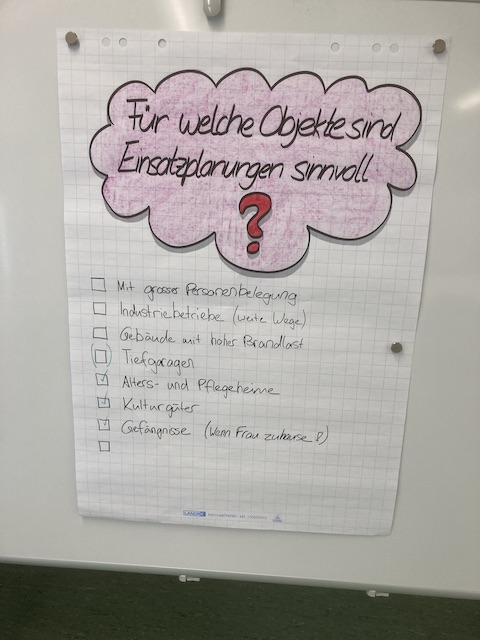 Für welche Objekte sind
Einsatzplanungen sinnvoll
?
Mit grosser Personenbelegung
Industriebetriebe (weite Wege)
Gebäude mit hoher Brandlast
Tiefgaragen
Alters- und Pflegeheime
Kulturgüter
Gefängnisse (Wenn Frau zuhause